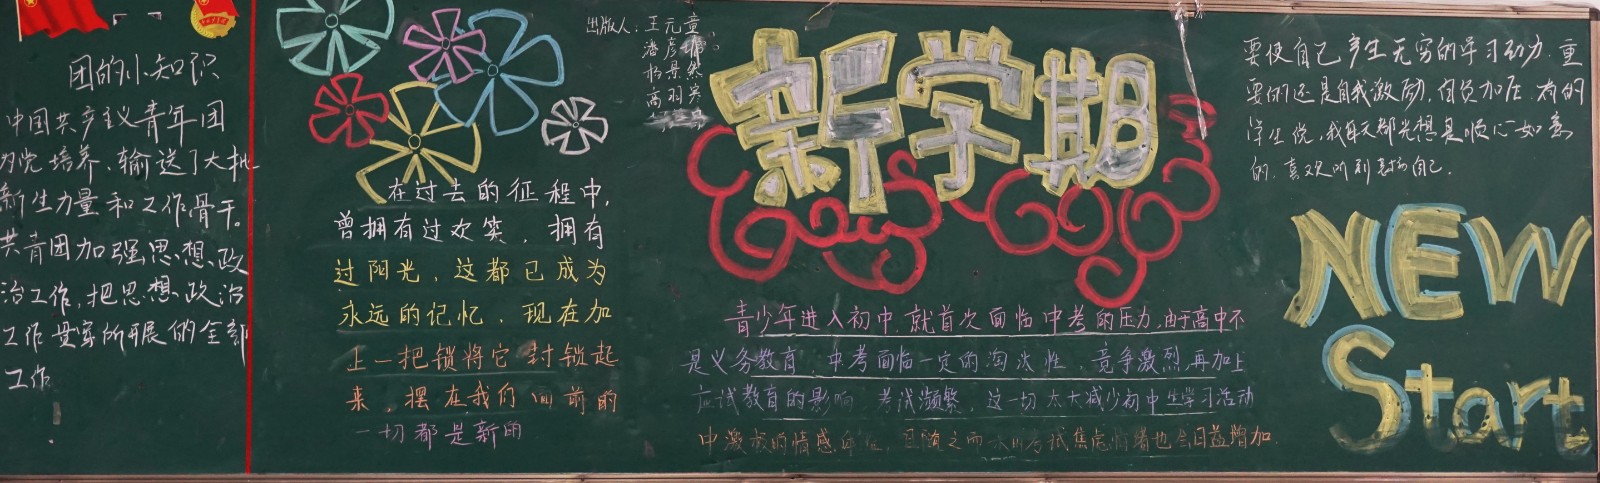 团的小知识
中国共产主义青年团
为党培养、输送了大批
新生力量和工作骨干。
共青团加强思想政
治工作，把思想政治
工作贯穿所开展的全部
工作
在过去的征程中，
曾拥有过欢笑，拥有
过阳光，这都已成为
永远的记忆，现在加
上一把锁将它封锁起
来，摆在我们面前的
一切都是新的
出版人：王元童
潘彦
杨景然
高羽
新学期
青少年进入初中，就首次面临中考的压力，由于高中不
是义务教育，中考面临一定的淘汰性，竞争激烈，再加上
应试教育的影响，考试频繁，这一切大大减少初中生学习活动
中激极的情感，且随之而考试焦虑情绪也会日益增加.
要使自己产生无穷的学习动力，重
要的还是自我激励，自负加压，有的
学生说，我每天都光想着顺心如意
的，喜欢听别对自己.
NEW
Start